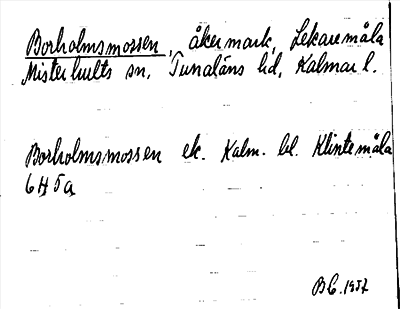 Borholmsmossen, åkermark, Lekaremåla
Misterhults sn, Tunaläns hd, Kalmar l.
Borholmsmossen ek. Kalm. bl. Klintemåla
6H5a
BL. 1957